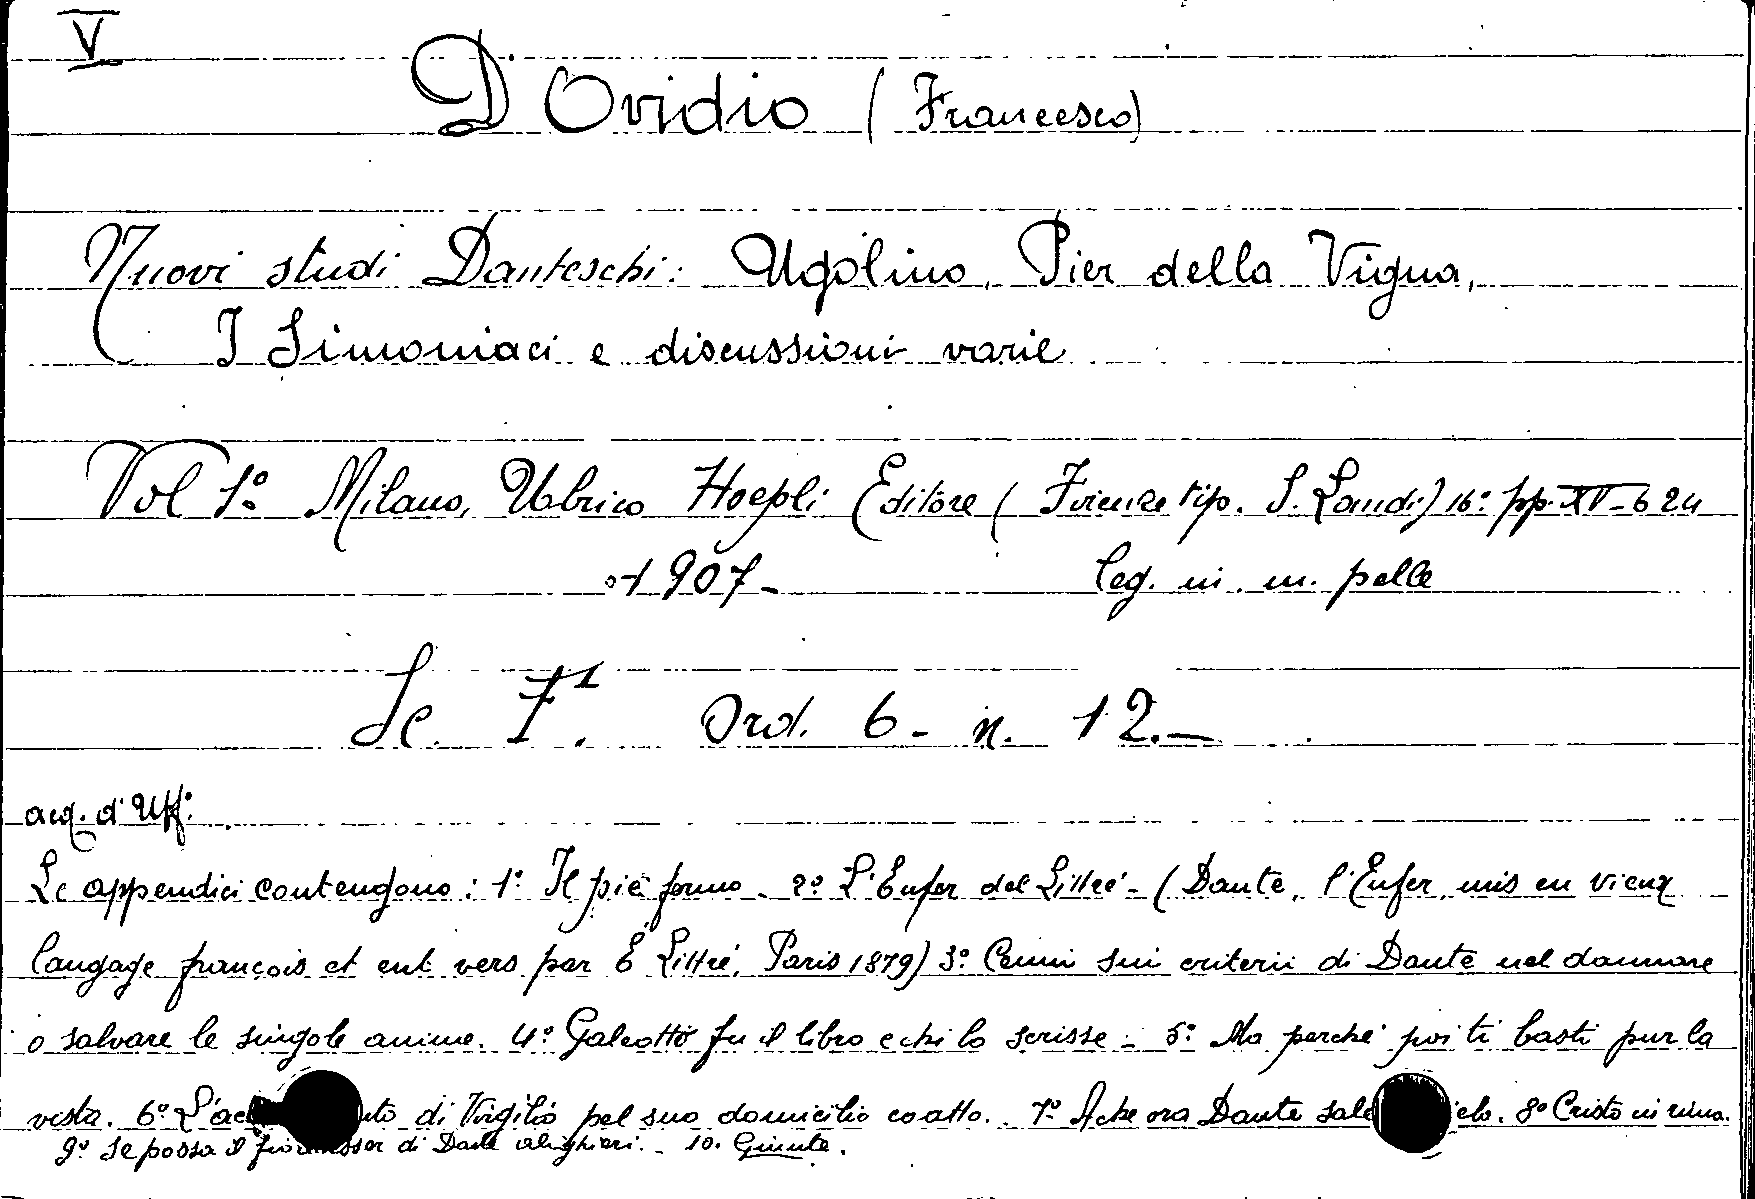 V
D'Ovidio (Francesco)
Nuovi studi Danteschi: Ugolino, Pier della Vigna,
I Simoniaci e discussioni varie
Vol 1º Milano, Ulrico Hoepli Editore (Firenze tip. S. Landi) 16º pp. XV-624
1907- leg. in m. pelle
Sc. 7.1 Ord. 6- n. 12.-
acq. d'Uff.
Le appendici contengono: 1º Il piè fermo - 2º L'Enfer del Littré - (Dante, l'Enfer, mis en vieux
langage françois et ent vers par E Littré, Paris 1879) 3º Cenni sui criterii di Dante nel dannare
o salvare le singole anime. 4º Galeotto fu il libro e chi lo scrisse - 5º Ma perché poi ti basti pur la
vista. 6º di Virgilio pel suo domicilio coatto. 7º A che ora Dante 8º Cristo in rima.
9º Se possa il di Dante Alighieri. - 10. Giunte.